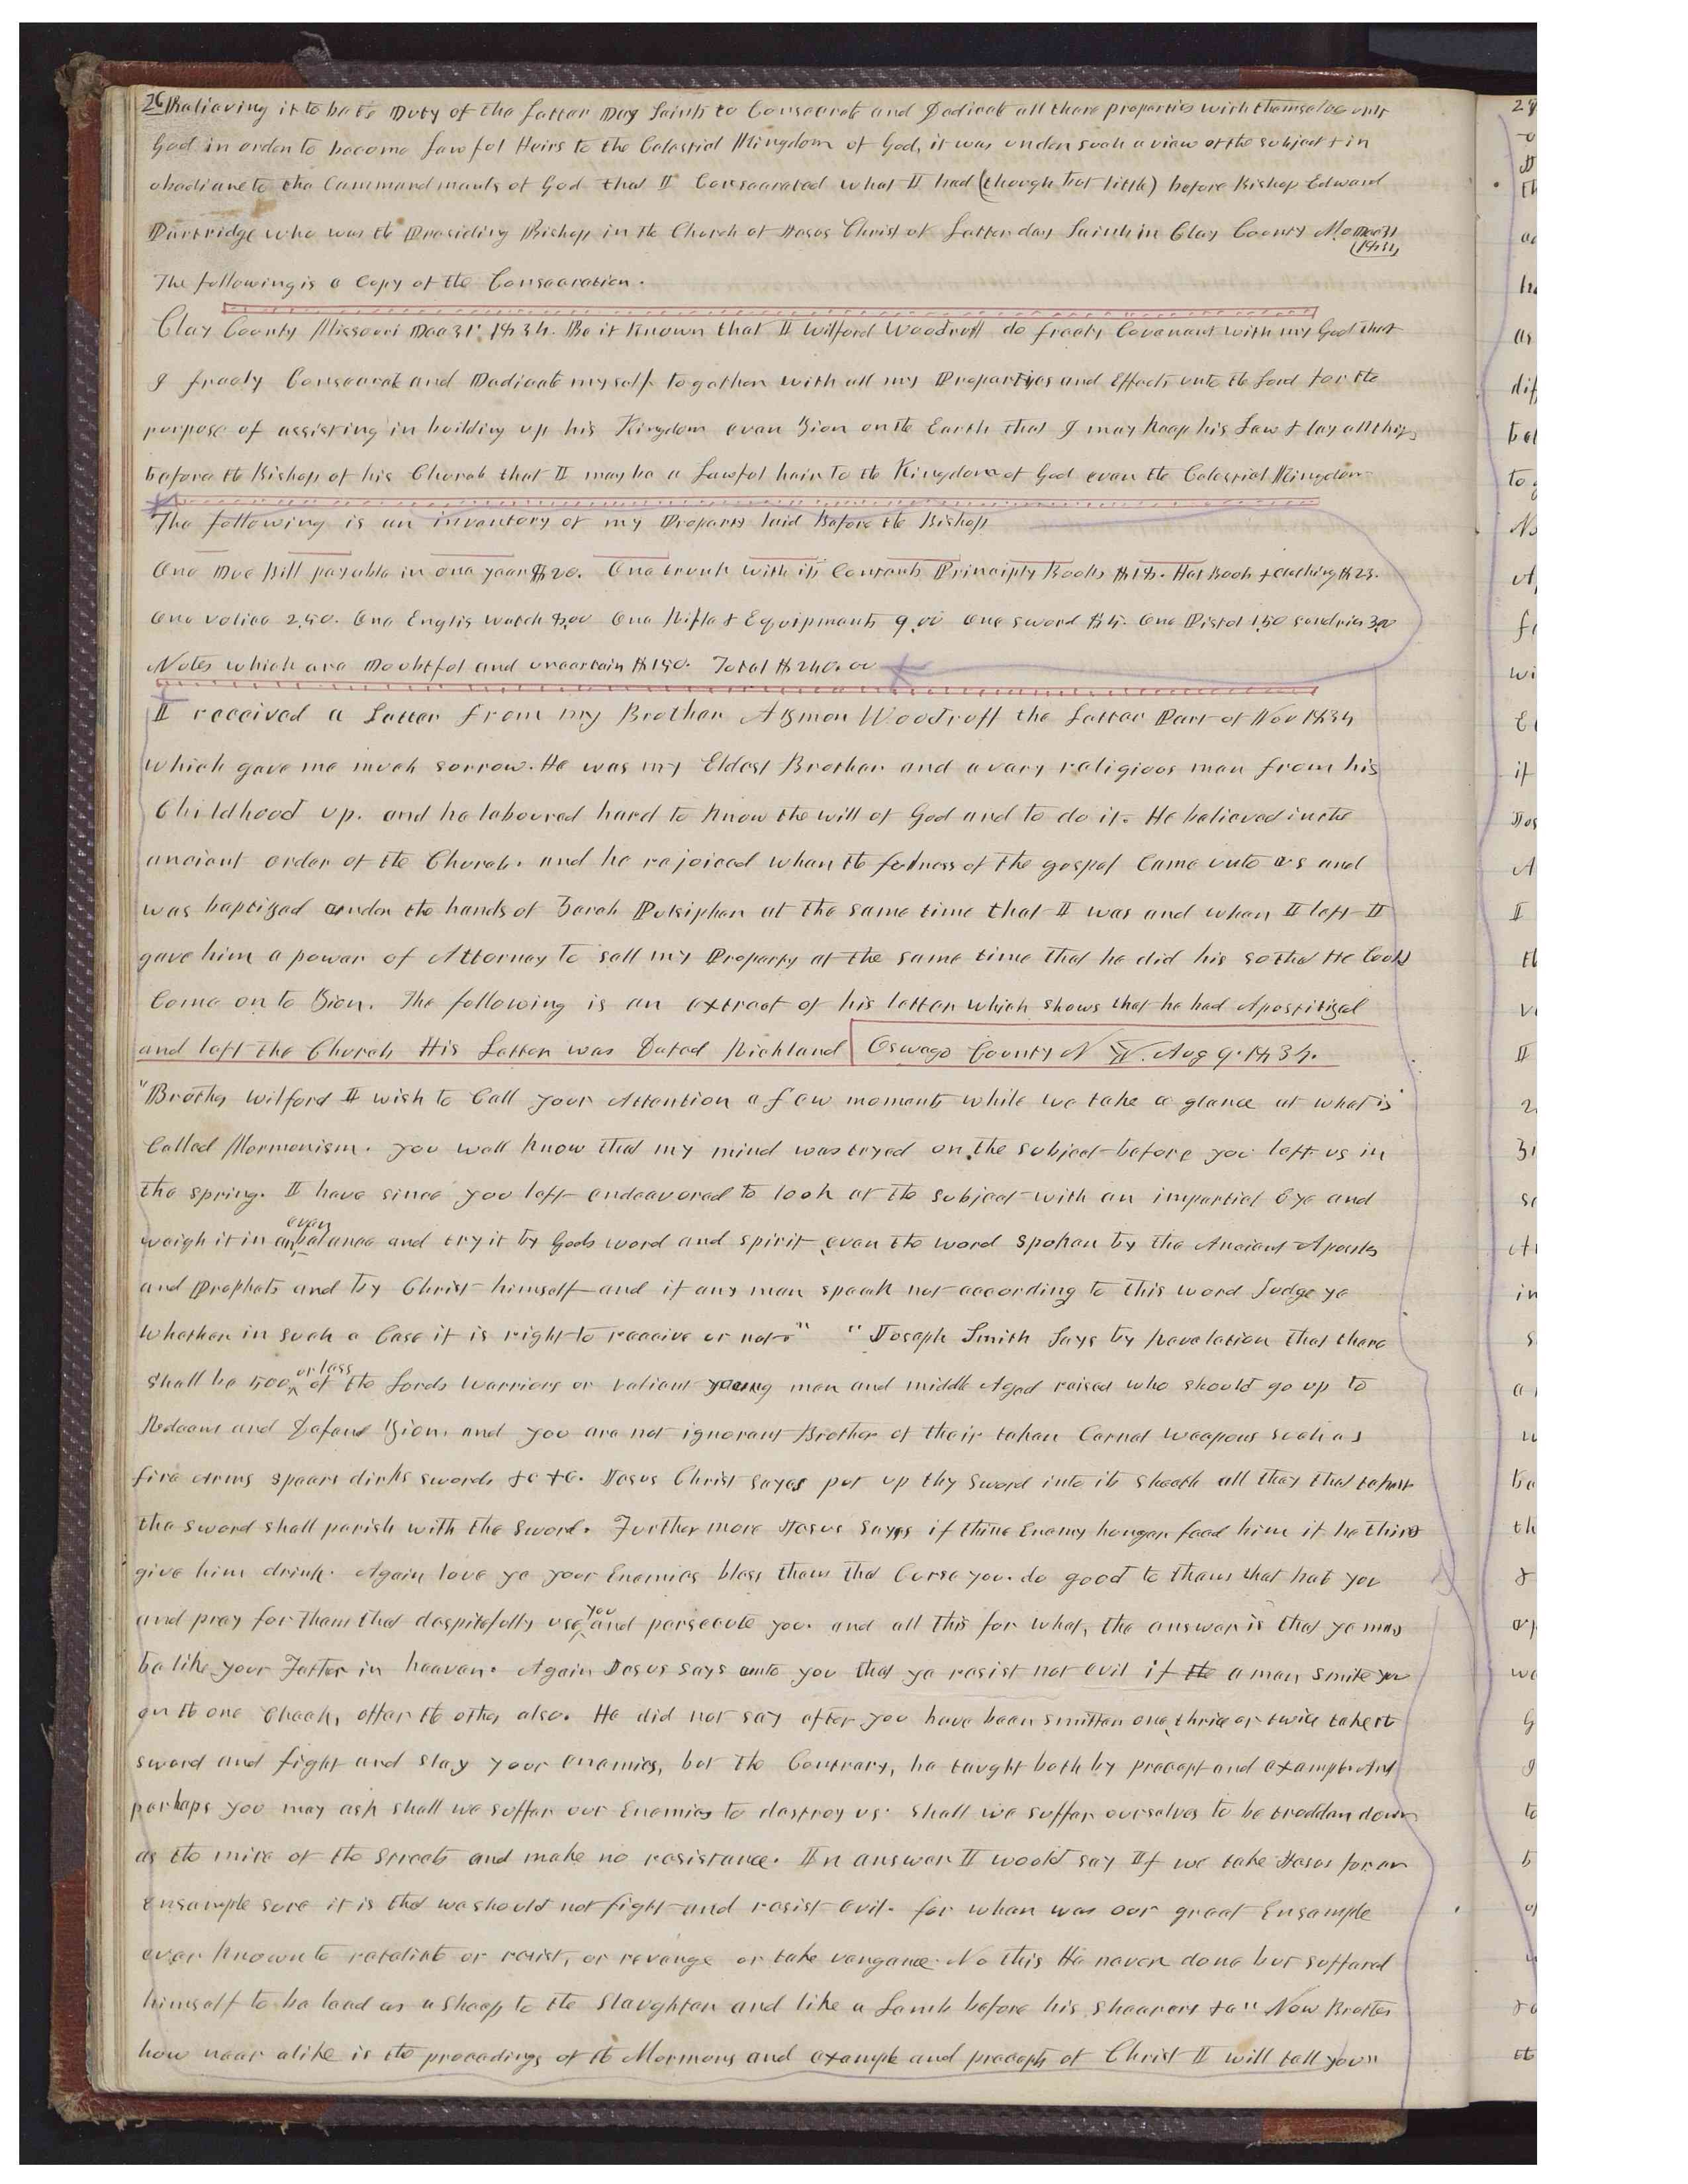 26 Believing it to be the Duty of the Latter Day Saints to Consecrate and Dedicate all there properties with themselves unto
God in order to become lawful Heirs to the Celestial Kingdom of God, it was under such a view of the subject & in
obediance to the Commandments of God that I Consecrated what I had (though but little) before Bishop Edward
Partridge who was the Presiding Bishop in the Church of Jesus Christ of Latter day Saints in Clay County Mo Dec 31
1834
The following is a Copy of the Consecration.
Clay County Missouri Dec 31st 1834. Be it Known that I Wilford Woodruff do freely Covenant with my God that
I freely Consecrate and Dedicate myself together with all my Properties and Effects unto the Lord for the
purpose of assisting in building up his Kingdom even Zion on the Earth that I may Keep his Law & lay all things
before the Bishop of his Church that I may be a Lawful heir to the Kingdom of God even the Celestial Kingdom
The following is an inventory of my Property laid Before the Bishop
One Due Bill payable in one year $20. One trunk with its Contents Principly Books $18. Hat Boots & clothing $23.
One valice 2,50. One Englis watch 8,00 One Rifle & Equipments 9,00 One sword $5. One Pistol 1,50 sundries 3,00
Notes which are Doubtful and uncertain $150. Total $240.00
I received a Letter from my Brother Azmon Woodruff the Latter Part of Nov 1834
which gave me much sorrow. He was my Eldest Brother and a very religious man from his
Childhood up. and he laboured hard to Know the will of God and to do it. He believed in the
ancient order of the Church. and he rejoiced when the fulness of the gospel Came unto us and
was baptized under the hands of Zerah Pulsipher at the same time that I was and when I left I
gave him a power of Attorney to sell my Property at the same time that he did his so that He Could
Come on to Zion. The following is an extract of his letter which shows that he had Apostitized
and left the Church His Letter was Dated Richland Oswego County N Y. Aug 9. 1834.
"Brother Wilford I wish to Call your Attention a few moments while we take a glance at what is
Called Mormonism. you well Know that my mind was tryed on the subject before you left us in
the spring. I have since you left endeavored to look at the subject with an impartial Eye and
even
weigh it in an balance and try it by Gods word and spirit even the word spoken by the Ancient Apostles
and Prophets and by Christ himself and if any man speak not according to this word Judge ye
whether in such a Case it is right to receive or not" "Joseph Smith Says by Revelation that there
or less
shall be 500 of the Lords Warriors or valiant young men and middle Aged raised who should go up to
Redeem and Defend Zion. and you are not ignorant Brother of their taken Carnal weapons such as
fire Arms spears dirks swords &c &c. Jesus Christ sayes put up thy sword into its sheath all they that taketh
the sword shall perish with the sword. Further more Jesus Sayes if thine Enemy hunger feed him if he thirst
give him drink. Again love ye your Enemies bless them that Curse you. do good to them that hate you
you
and pray for them that despitefully use and persecute you. and all this for what, the answer is that ye may
be like your Father in heaven. Again Jesus says unto you that ye resist not evil if the a man smite you
on the one Cheek, offer the other also. He did not say after you have been smitten one, thrice or twice take the
sword and fight and slay your enemies, but the Contrary, he taught both by precept and example And
perhaps you may ask shall we suffer our Enemies to destroy us. shall we suffer ourselves to be trodden down
as the mire of the streets and make no resistance. In answer I would say If we take Jesus for an
ensample sure it is that we should not fight and resist evil. for when was our great Ensample
ever Known to retaliate or resist, or revenge or take vengance. No this He never done but suffered
himself to be lead as a sheep to the Slaughter and like a Lamb before his shearers &c" Now Brother
how near alike is the procedings of the Mormons and example and precepts of Christ I will tell you"